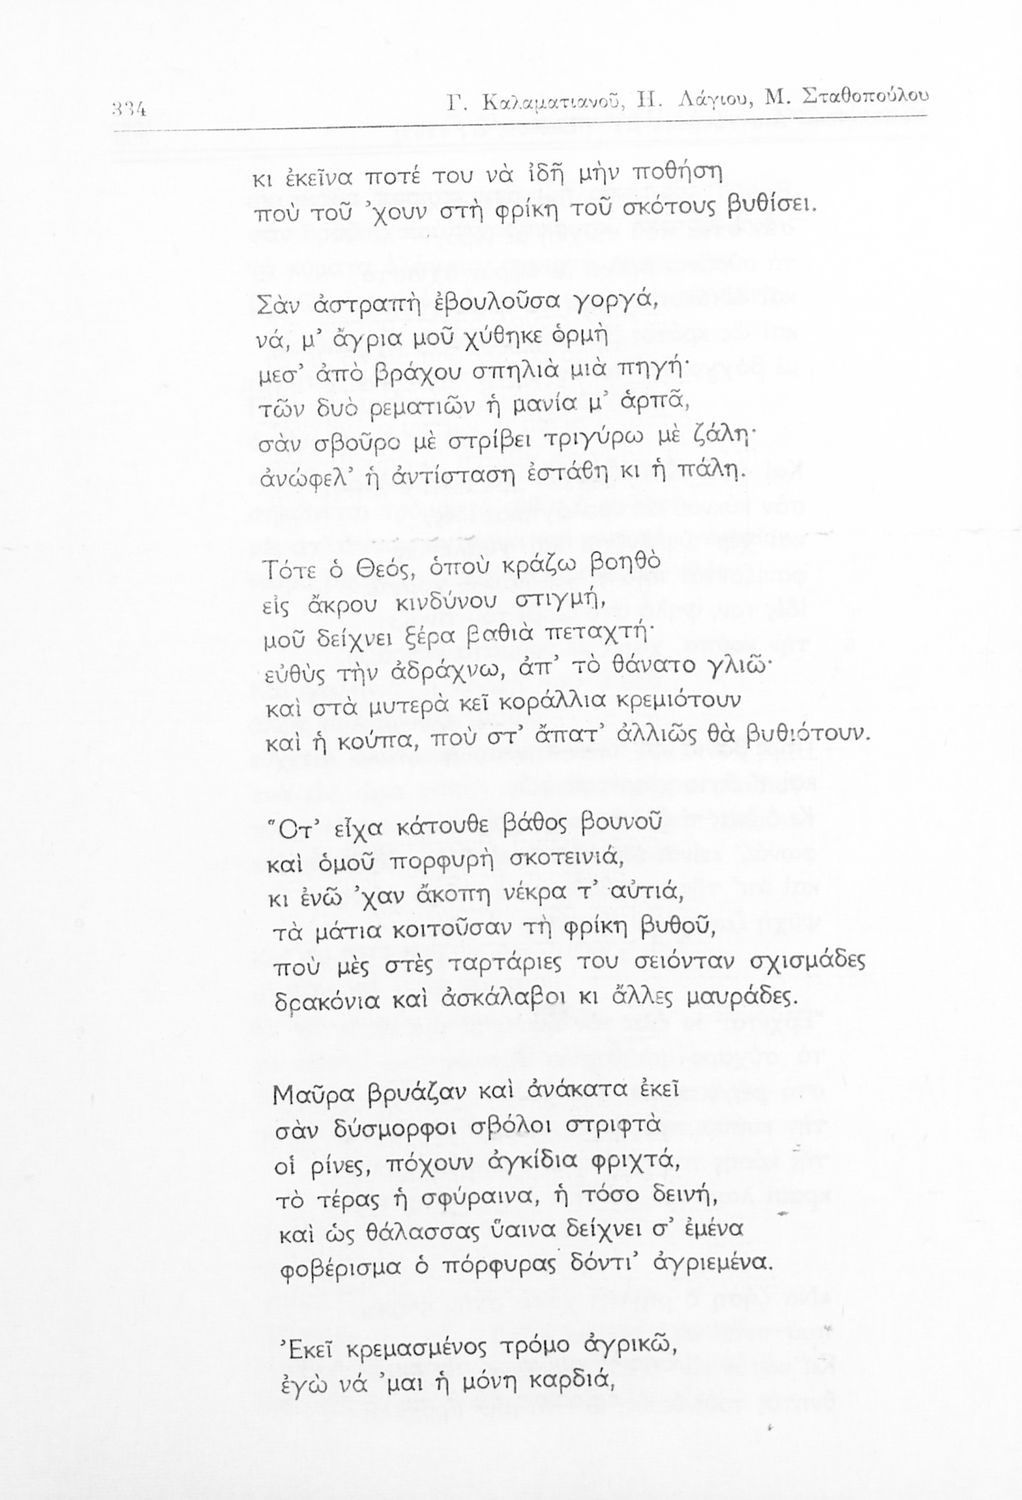 334
Γ. Καλαματιανοῦ, Η. Λάγιου, Μ. Σταθοπούλου
κι ἐκεῖνα ποτέ του νὰ ἰδῆ μὴν ποθήση
ποὺ τοῦ ’χουν στὴ φρίκη τοῦ σκότους βυθίσει.
Σὰν ἀστραπὴ ἐβουλοῦσα γοργά,
νά, μ’ ἄγρια μοῦ χύθηκε ὁρμὴ
μεσ’ ἀπὸ βράχου σπηλιὰ μιὰ πηγή·
τῶν δυὸ ρεματιῶν ἡ μανία μ’ ἁρπᾶ,
σὰν σβοῦρο μὲ στρίβει τριγύρω μὲ ζάλη·
ἀνώφελ’ ἡ ἀντίσταση ἐστάθη κι ἡ πάλη.
Τότε ὁ Θεός, ὁποὺ κράζω βοηθὸ
εἰς ἄκρου κινδύνου στιγμή,
μοῦ δείχνει ξέρα βαθιὰ πεταχτή·
εὐθὺς τὴν ἀδράχνω, ἀπ’ τὸ θάνατο γλιῶ·
καὶ στὰ μυτερὰ κεῖ κοράλλια κρεμιότουν
καὶ ἡ κούπα, ποὺ στ’ ἄπατ’ ἀλλιῶς θὰ βυθιότουν.
Ὅτ’ εἶχα κάτουθε βάθος βουνοῦ
καὶ ὁμοῦ πορφυρὴ σκοτεινιά,
κι ἐνῶ ’χαν ἄκοπη νέκρα τ’ αὐτιά,
τὰ μάτια κοιτοῦσαν τὴ φρίκη βυθοῦ,
ποὺ μὲς στὲς ταρτάριες του σειόνταν σχισμάδες
δρακόνια καὶ ἀσκάλαβοι κι ἄλλες μαυράδες.
Μαῦρα βρυάζαν καὶ ἀνάκατα ἐκεῖ
σὰν δύσμορφοι σβόλοι στριφτὰ
οἱ ρίνες, πόχουν ἀγκίδια φριχτά,
τὸ τέρας ἡ σφύραινα, ἡ τόσο δεινή,
καὶ ὡς θάλασσας ὕαινα δείχνει σ’ ἐμένα
φοβέρισμα ὁ πόρφυρας δόντι’ ἀγριεμένα.
Ἐκεῖ κρεμασμένος τρόμο ἀγρικῶ,
ἐγὼ νά ’μαι ἡ μόνη καρδιά,